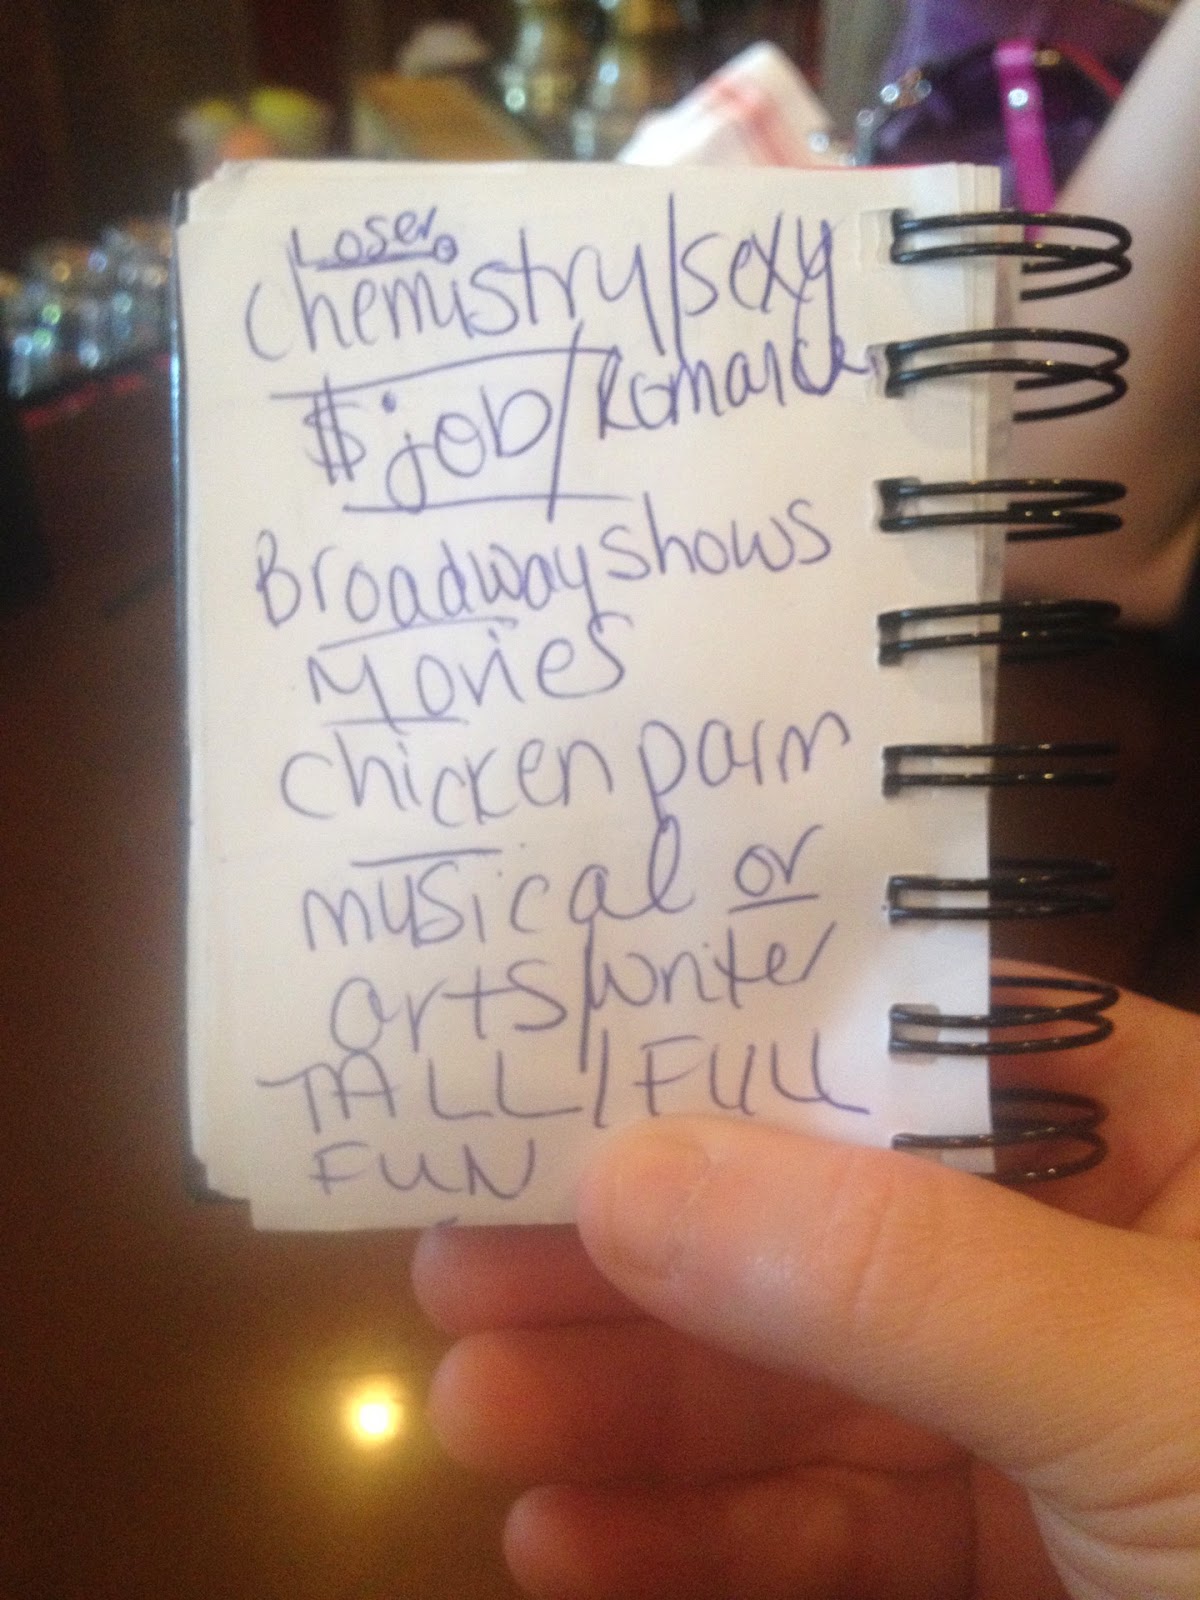 Loser.
Chemistry/sexy
$job/Romance
Broadway shows
Movies
chicken parm
musical or
arts/writer
TALL/FULL
FUN